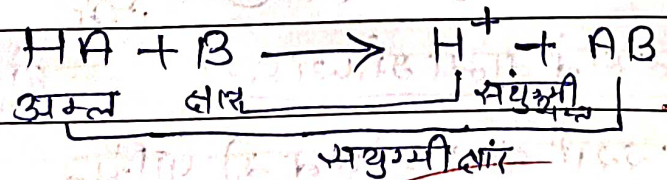 HA + B ⟶ H⁺ + AB
अम्ल क्षार संयुग्मी अम्ल
संयुग्मी क्षार